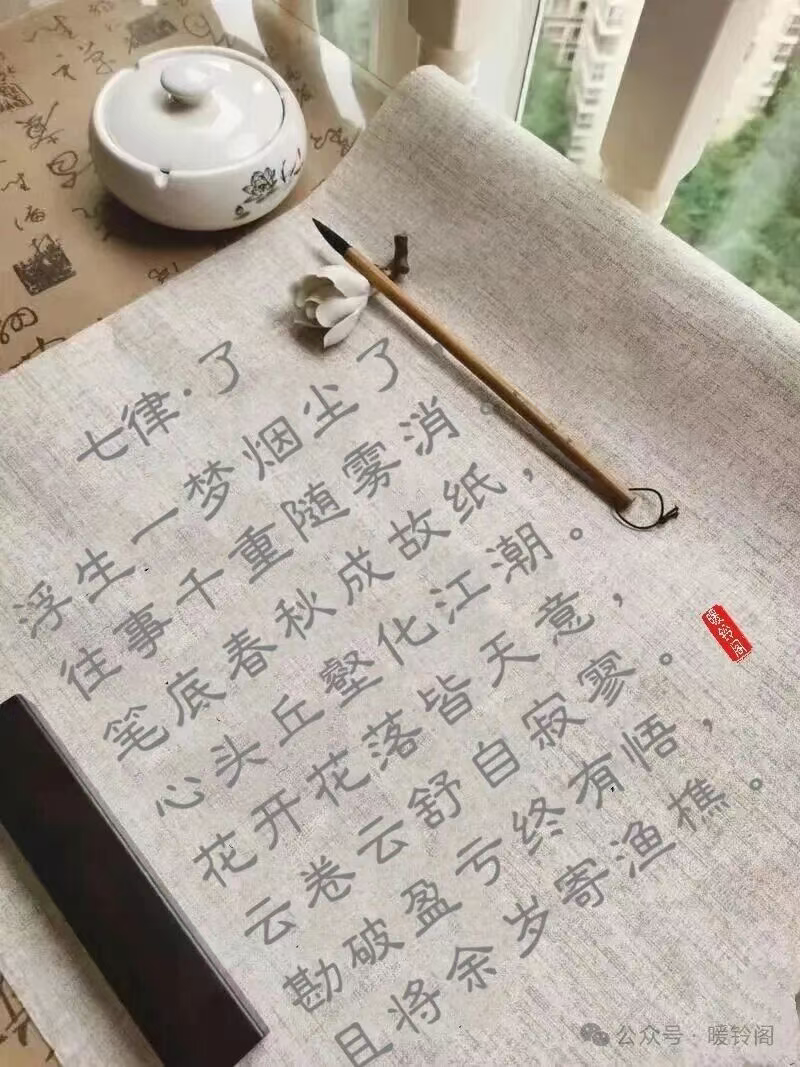 七律·了
浮生一梦烟尘了，
往事千重随雾消。
笔底春秋成故纸，
心头丘壑化江潮。
花开花落皆天意，
云卷云舒自寂寥。
勘破盈亏终有悟，
且将余岁寄渔樵。
暖铃阁
公众号·暖铃阁